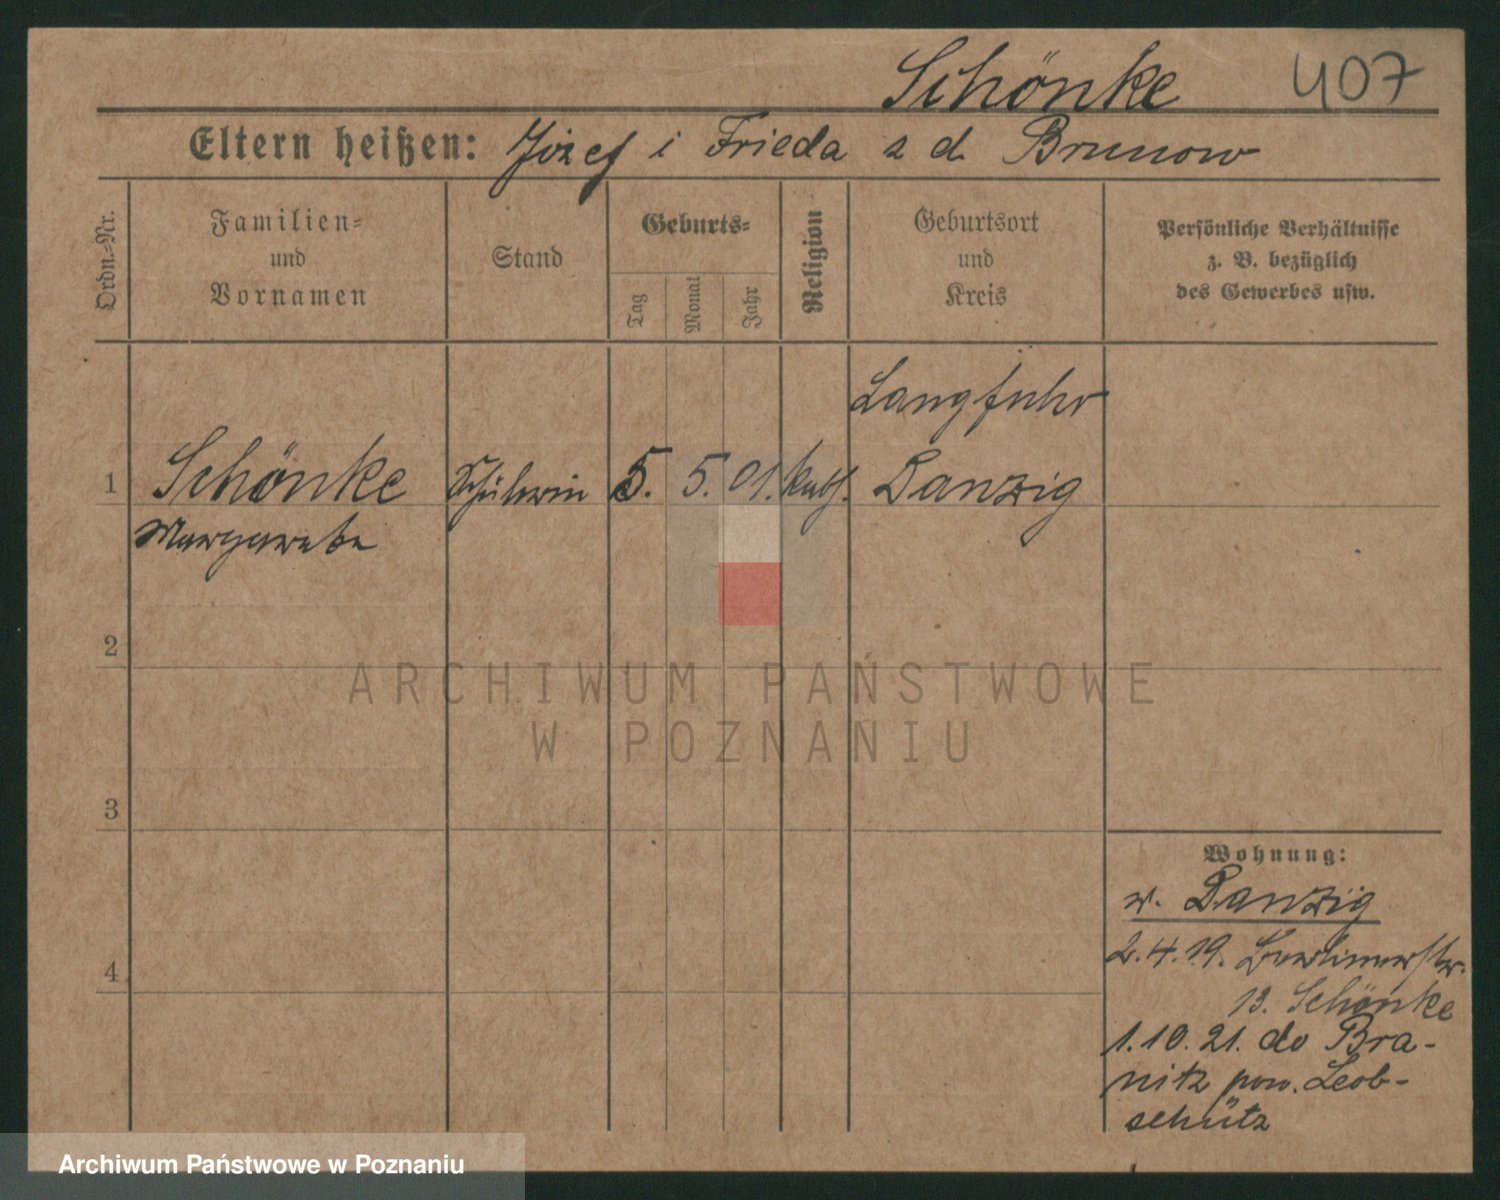 Schönke 407
Eltern heißen: Józef i Frieda z d. Brunow
Ordn.-Nr.
Familien-
und
Vornamen
Stand
Geburts-
Tag
Monat
Jahr
Religion
Geburtsort
und
Kreis
Persönliche Verhältnisse
z. B. bezüglich
des Gewerbes usw.
Langfuhr
1 Schönke Schülerin 5. 5. 01. kath. Danzig
Margarete
2
ARCHIWUM PAŃSTWOWE
W POZNANIU
3
4
Wohnung:
v. Danzig
2.4.19. Berlinerstr.
13. Schönke
1.10.21. do Bra-
nitz pow. Leob-
schütz
Archiwum Państwowe w Poznaniu